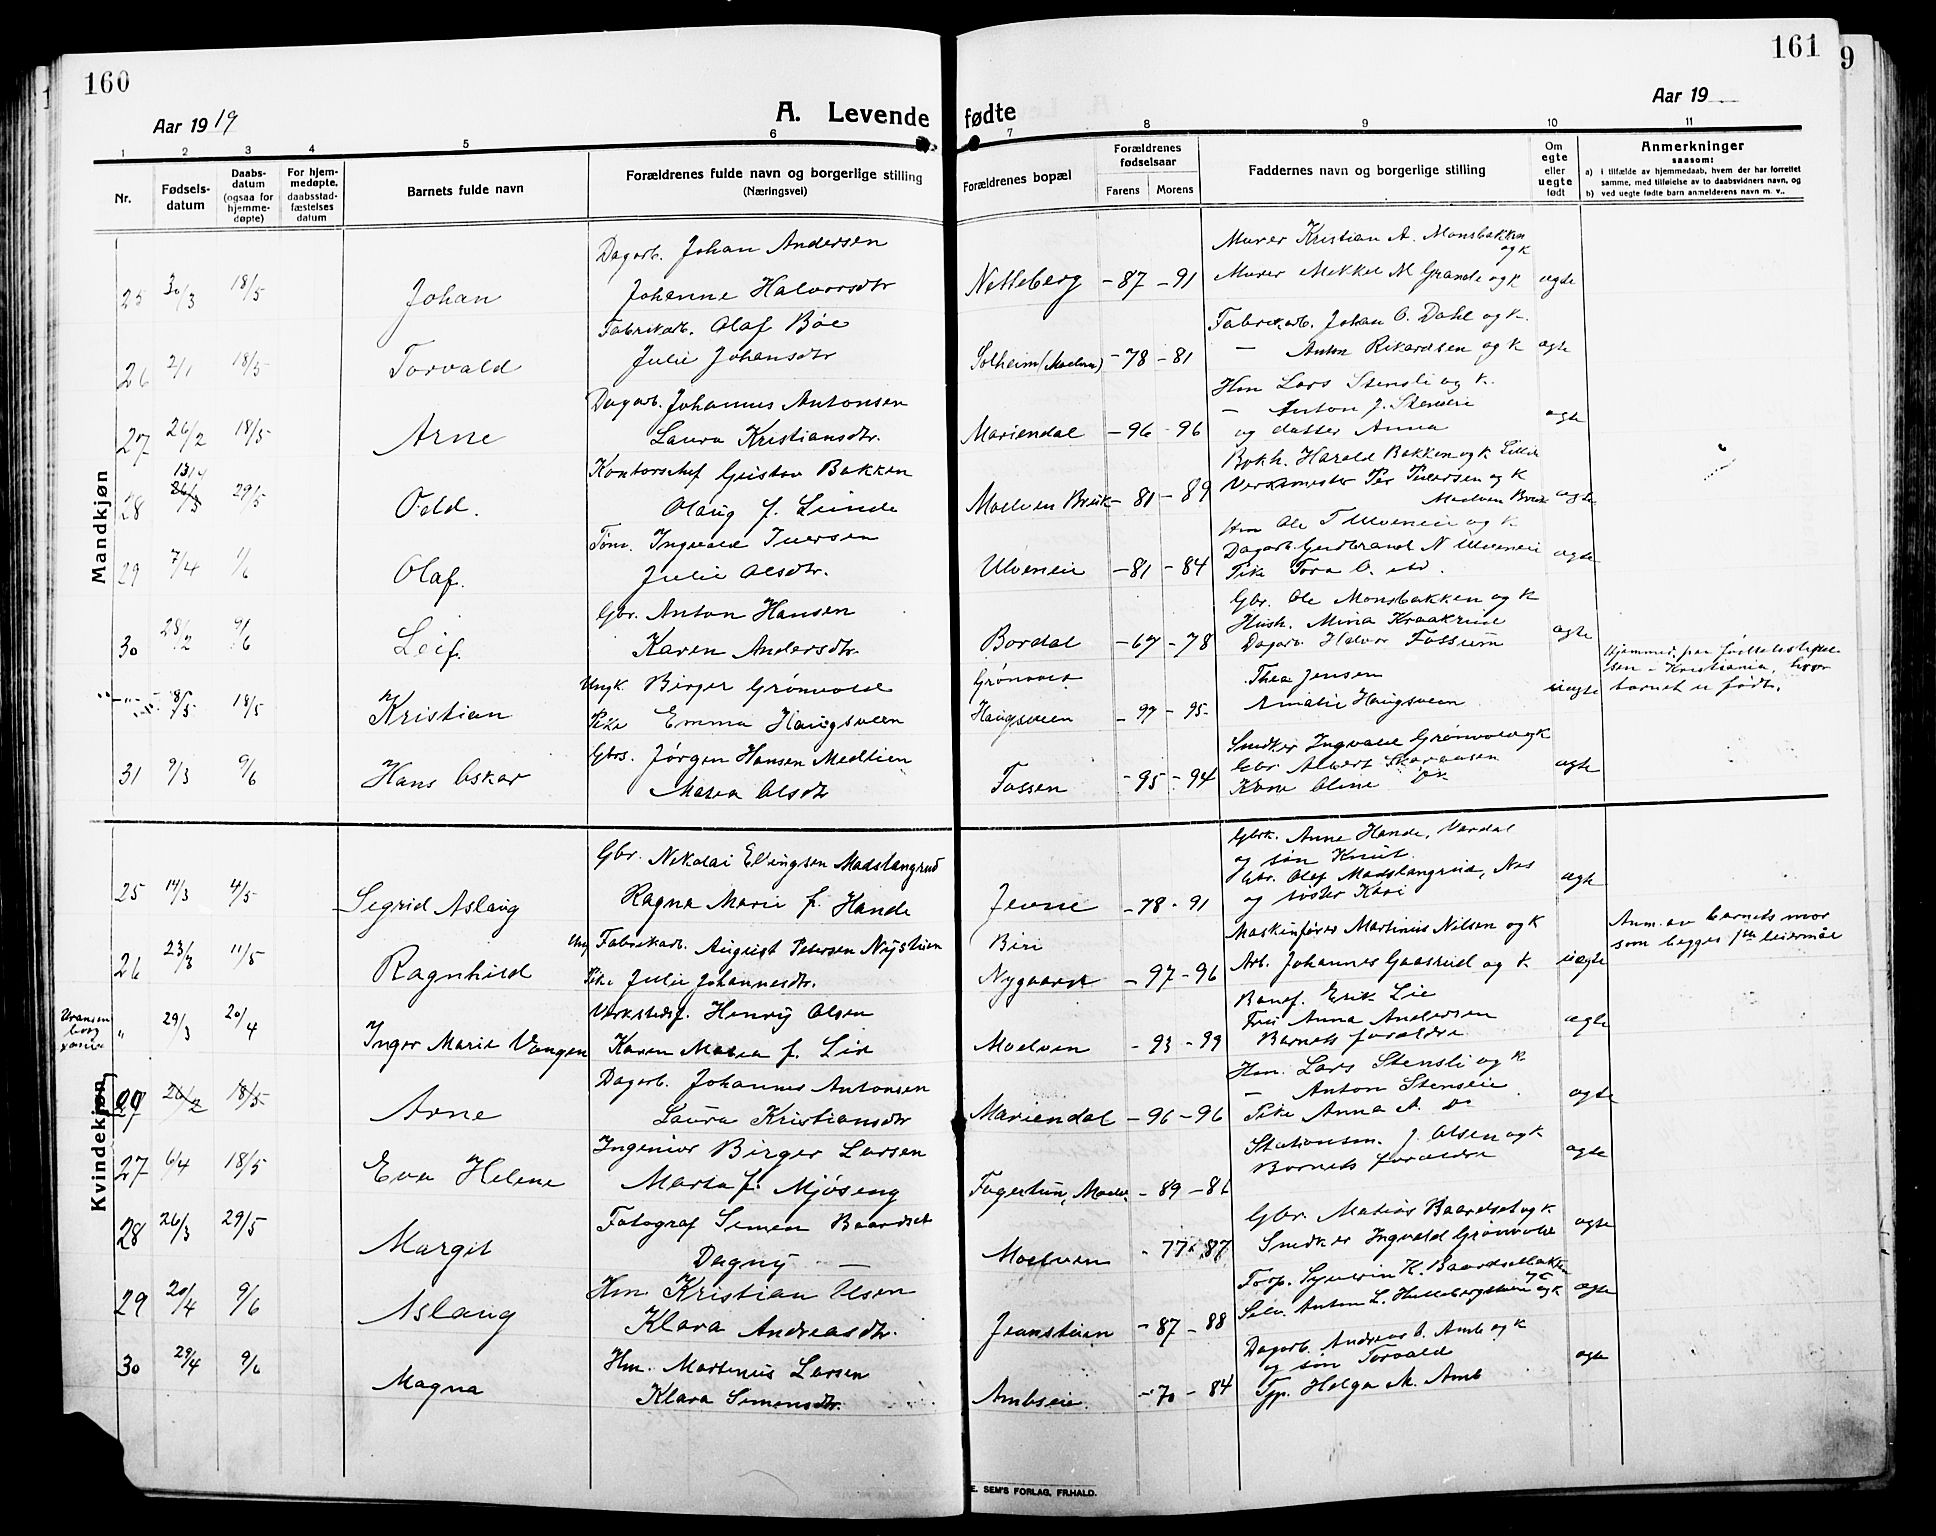 160
161
9
Aar 1919
A. Levende fødte
Aar 19
1 2 3 4 5 6 7 8 9 10 11
Nr.
Fødsels-
datum
Daabs-
datum
(ogsaa for
hjemme-
døpte)
For hjem-
medøpte,
daabsstad-
fæstelses
datum
Barnets fulde navn
Forældrenes fulde navn og borgerlige stilling
(Næringsvei)
Forældrenes bopæl
Forældrenes
fødselsaar
Farens Morens
Faddernes navn og borgerlige stilling
Om
egte
eller
uegte
født
Anmerkninger
saasom:
a) i tilfælde av hjemmedaab, hvem der har forrettet
samme, med tilføielse av to daabsvidners navn, og
b) ved uegte fødte barn anmelderens navn m. v..
Mandkjøn
Dagarb. Johan Andersen Murer Kristian A. Monsbakken
og k
25 30/3 18/5 Johan Johanne Halvorsdtr Netteberg -87 -91 Murer Mekkel M Grande og k egte
Fabrikarb. Olaf Bøe Fabrikarb. Johan O. Dahl og k.
26 2/1 18/5 Torvald Julie Johansdtr Solheim (Moelven) -78 -81 — Anton Rikardsen og k egte
Dagarb. Johannes Antonsen Hm Lars Stensli og k.
— Anton J. Stenseie
27 26/2 18/5 Arne Laura Kristiansdtr. Mariendal -96 -96 og datter Anna egte
Kontorschef Gustav Bakken Bokh. Harald Bakken og k Lillie
13/4
28 26/3 29/5 Odd. Olaug f. Lunde Moelven Bruk -81 -89 Verksmester Per Pedersen og k egte
Moelven Bruk
Tøm. Ingvald Iversen Hm Ole T Ulveneie og k
Dagarb Gudbrand N Ulveneie
29 7/4 1/6 Olaf. Julie Olsdtr. Ulveneie -81 -84 Pike Tora O. sd. egte
Gbr. Anton Hansen Gbr. Ole Monsbakken og k
Hush. Mina Kraakrud
30 28/2 9/6 Leif. Karen Andersdtr. Bordal -67 -78 Dagarb Halvor Fossum egte
Ungk. Birger Grønvold Grønvold Thea Jensen
Hjemmed. paa fødselsstiftel-
sen i Kristiania, hvor
barnet er født.
-"- 8/5 18/5 Kristian Pike Emma Haugsveen Haugsveen -97 -95 Amalie Haugsveen uegte
Gbrs. Jørgen Hansen Medlien Snedker Ingvald Grønvold og k
Gbr Albert Skaraasen
31 9/3 9/6 Hans Oskar Marea Olsdtr Fossen -95 -94 Kone Oline egte
Kvindekjøn
Gbr. Nikolai Evingsen Madslangrud Gbrk. Anne Hande, Vardal
og søn Knut.
Gbr. Olaf Madslangrud, Nes
25 14/3 4/5 Segrid Aslaug Ragna Marie f. Hande Jevne -78 -91 og søster Kari egte
Ung Fabrikarb. August Petersen Nystuen Biri Maskinfører Martinus Nilsen og k
Anm. av barnets mor
som begges 1ste leiermål
26 23/3 11/5 Ragnhild Pike Julie Johannesdtr. Nygaard -97 -96 Arb. Johannes Gaasrud og k uegte
Uranien
borg
Verkstedsf. Henry Olsen Banef. Erik Lie
Frk Anna Andersen
" 29/3 20/4 Inger Marie Vangen Karen Marea f. Lie Moelven -93 -99 Barnets forældre egte
Dagarb. Johannes Antonsen Hm. Lars Stensli og k
— Anton Stenseie
27 26/2 18/5 Arne Laura Kristiansdtr Mariendal -96 -96 Pike Anna A. do egte
Ingeniør Birger Larsen Stationsm. J. Olsen og k
27 6/4 18/5 Eva Helene Marta f. Mjøseng Fagertun, Moelv. -89 -86 Barnets forældre egte
Fotograf Simen Baardset Gbr. Matias Baardset og k
28 26/3 29/5 Margit Dagny — Moelven -77 -87 Snedker Ingvald Grønvold egte
Hm. Kristian Olsen Forp. Syverin K. Baardsetbakken
29 20/4 9/6 Aslaug Klara Andreasdtr. Jevnstuen -87 -88 Selv. Anton L. Hellebergstuen og k egte
Hm. Martinus Larsen Dagarb. Andreas O. Amb og k
og søn Torvald
30 29/4 9/6 Magna Klara Simensdtr. Ambseie. -70 -84 Tjp. Helga M. Amb egte
E. SEM'S FORLAG, FR.HALD.